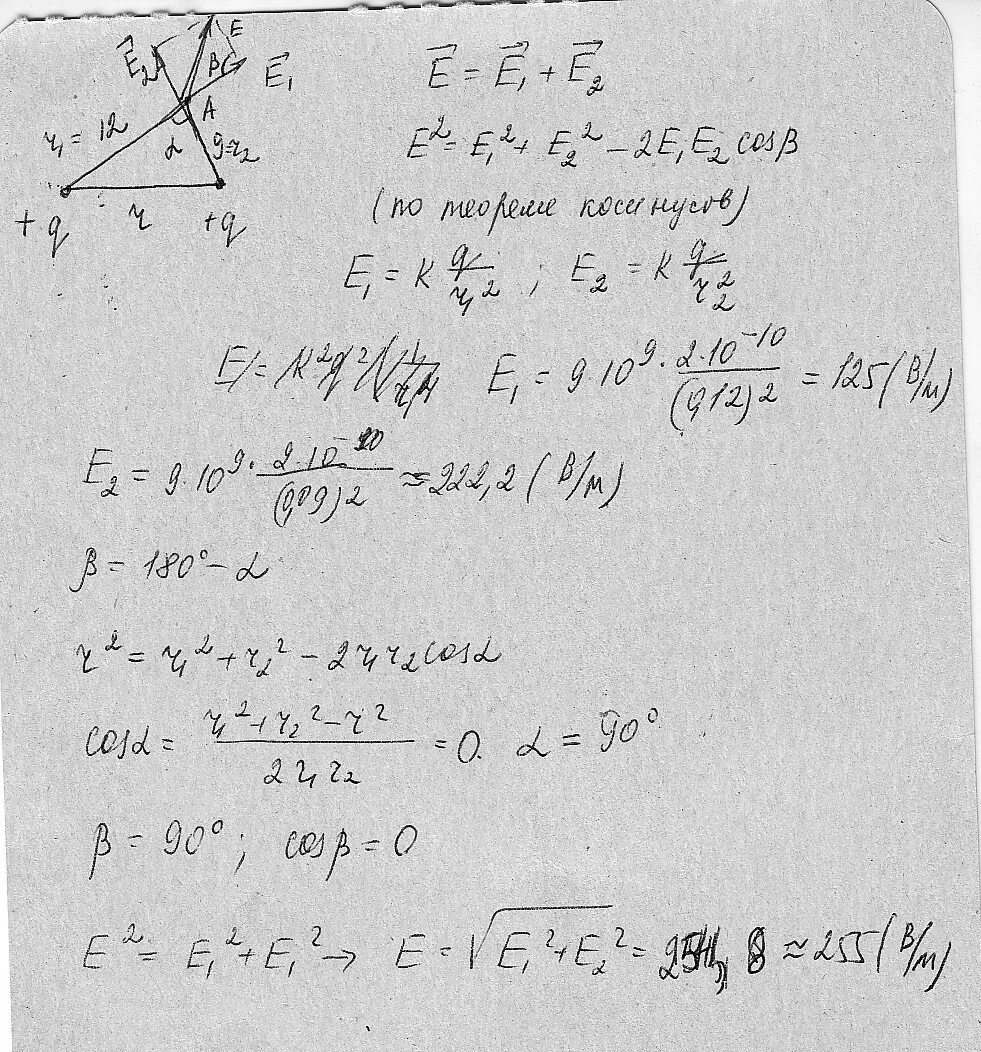 E
E⃗₂
β
E⃗₁
A
r₁ = 12
α
9=r₂
+q
r
+q
E⃗ = E⃗₁ + E⃗₂
E² = E₁² + E₂² − 2E₁E₂ cosβ
(по теореме косинусов)
E₁ = K q/r₁² ; E₂ = K q/r₂²
E₁ = 9·10⁹ · 2·10⁻¹⁰/(0,12)² = 125 (В/м)
E₂ = 9·10⁹ · 2·10⁻¹⁰/(0,09)² ≈ 222,2 (В/м)
β = 180° − α
r² = r₁² + r₂² − 2r₁r₂cosα
cosα = (r₁² + r₂² − r²)/(2r₁r₂) = 0. α = 90°
β = 90° ; cosβ = 0
E² = E₁² + E₁² → E = √(E₁² + E₂²) = ≈ 255 (В/м)